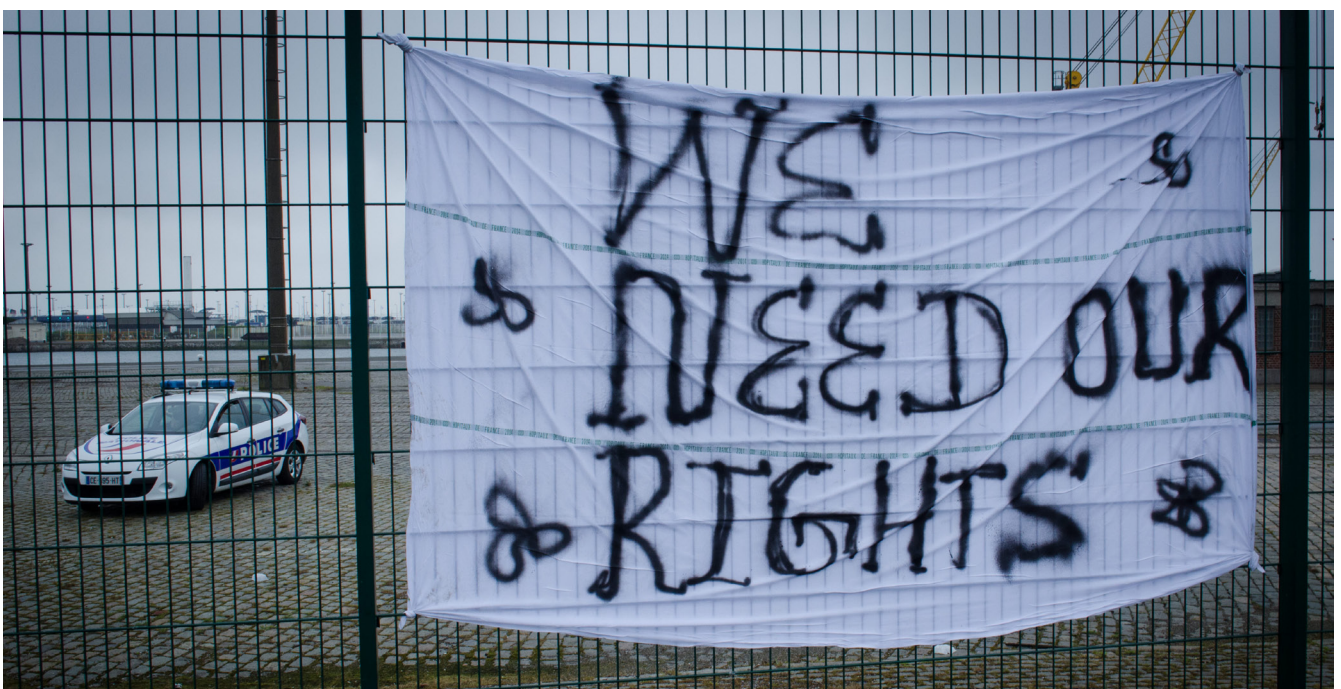 WE
NEED OUR
RIGHTS
POLICE